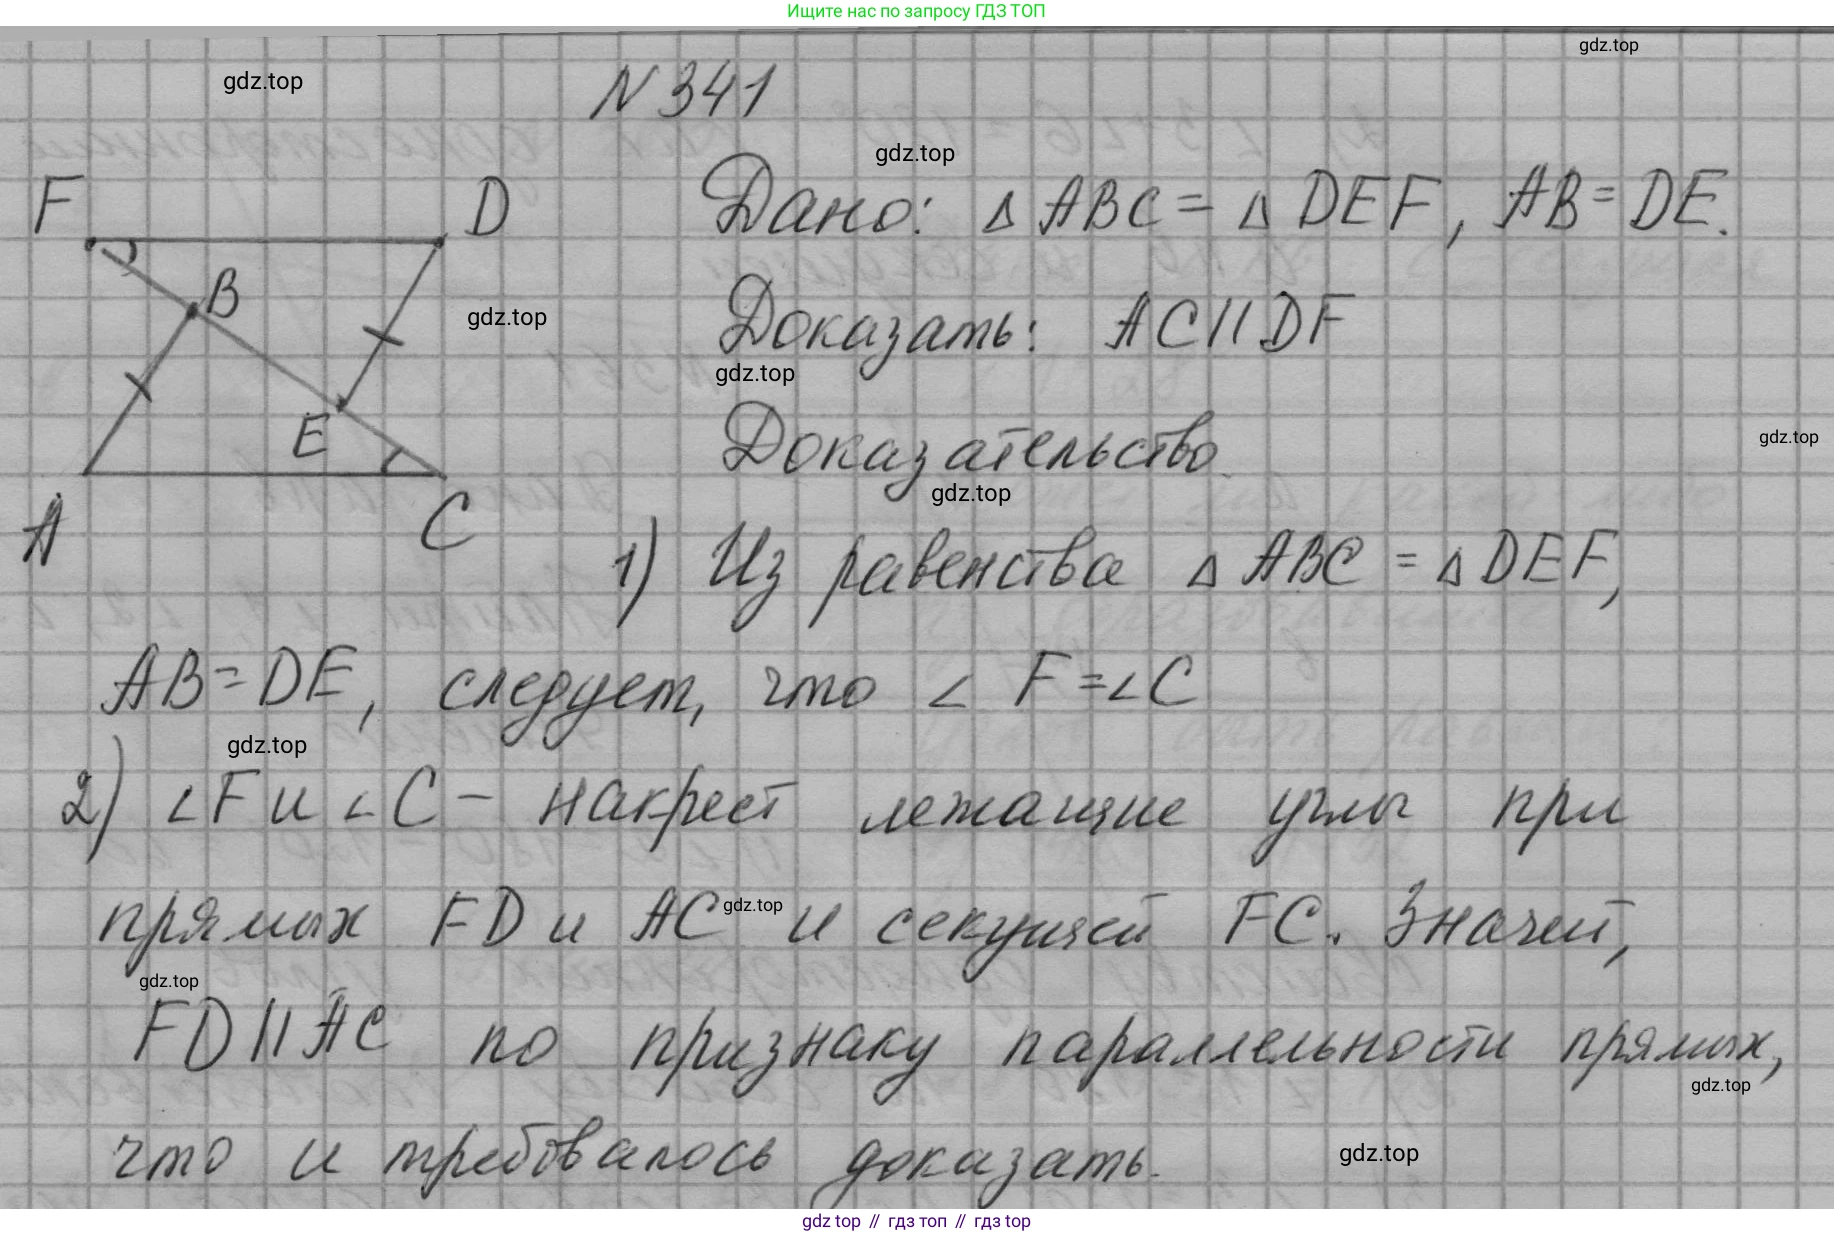 Ищите нас по запросу ГДЗ ТОП
gdz.top
gdz.top
N 341
gdz.top
F D
Дано: Δ ABC = Δ DEF, AB = DE.
B
gdz.top
Доказать: AC || DF
gdz.top
E
Доказательство.
gdz.top
gdz.top
A C
1) Из равенства Δ ABC = Δ DEF,
AB = DE, следует, что ∠ F = ∠ C
gdz.top
2) ∠ F и ∠ C – накрест лежащие углы при
прямых FD и AC и секущей FC. Значит,
gdz.top
gdz.top
FD || AC по признаку параллельности прямых,
gdz.top
что и требовалось доказать.
gdz.top
gdz top // гдз топ // гдз top